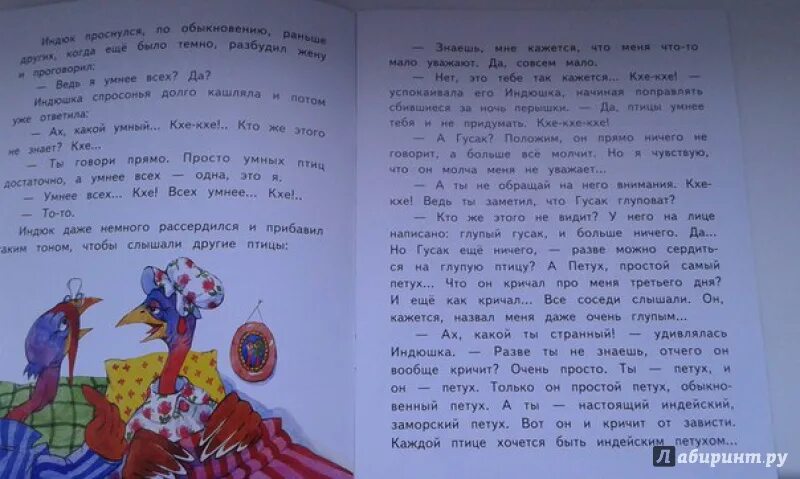 Индюк проснулся, по обыкновению, раньше
других, когда ещё было темно, разбудил жену
и проговорил:
— Ведь я умнее всех? Да?
Индюшка спросонья долго кашляла и потом
уже ответила:
— Ах, какой умный... Кхе-кхе!.. Кто же этого
не знает? Кхе...
— Ты говори прямо. Просто умных птиц
достаточно, а умнее всех — одна, это я.
— Умнее всех... Кхе! Всех умнее... Кхе!..
— То-то.
Индюк даже немного рассердился и прибавил
таким тоном, чтобы слышали другие птицы:
— Знаешь, мне кажется, что меня что-то
мало уважают. Да, совсем мало.
— Нет, это тебе так кажется... Кхе-кхе! —
успокаивала его Индюшка, начиная поправлять
сбившиеся за ночь перышки. — Да, птицы умнее
тебя и не придумать. Кхе-кхе-кхе!
— А Гусак? Положим, он прямо ничего не
говорит, а больше всё молчит. Но я чувствую,
что он молча меня не уважает...
— А ты не обращай на него внимания. Кхе-
кхе! Ведь ты заметил, что Гусак глуповат?
— Кто же этого не видит? У него на лице
написано: глупый гусак, и больше ничего. Да...
Но Гусак ещё ничего, — разве можно сердить-
ся на глупую птицу? А Петух, простой самый
петух... Что он кричал про меня третьего дня?
И ещё как кричал... Все соседи слышали. Он,
кажется, назвал меня даже очень глупым...
— Ах, какой ты странный! — удивлялась
Индюшка. — Разве ты не знаешь, отчего он
вообще кричит? Очень просто. Ты — петух, и
он — петух. Только он простой петух, обыкно-
венный петух. А ты — настоящий индейский,
заморский петух. Вот он и кричит от зависти.
Каждой птице хочется быть индейским петухом...
Лабиринт.ру